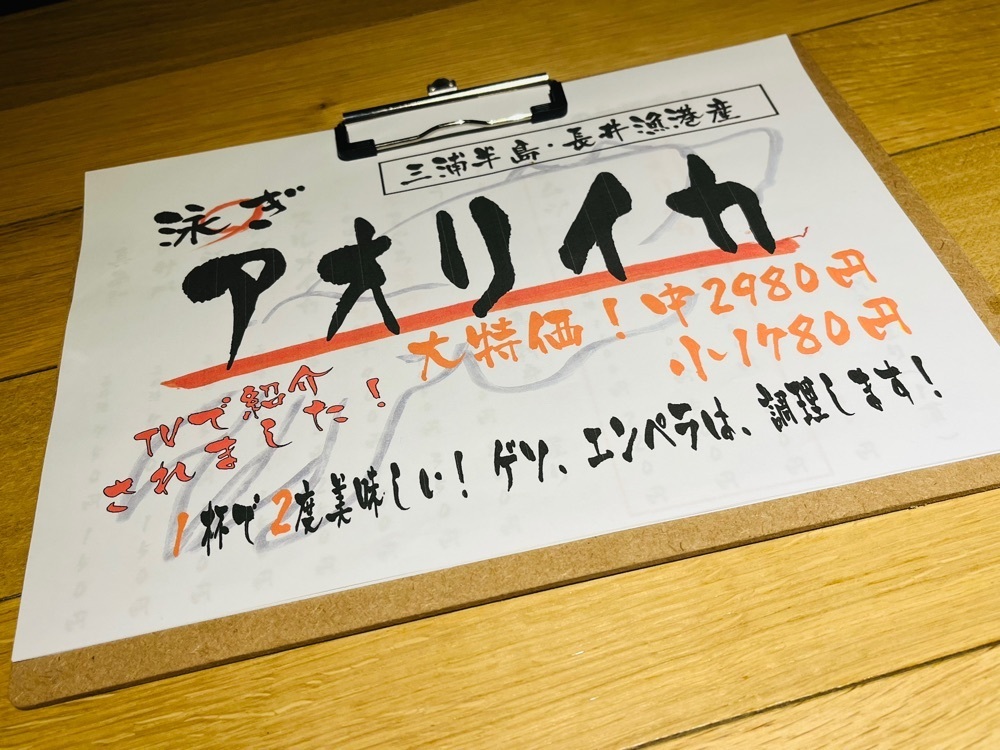 三浦半島・長井漁港産
泳ぎ
アオリイカ
大特価！中2980円
小1780円
TVで紹介
されました！
1杯で2度美味しい！ゲソ、エンペラは、調理します！